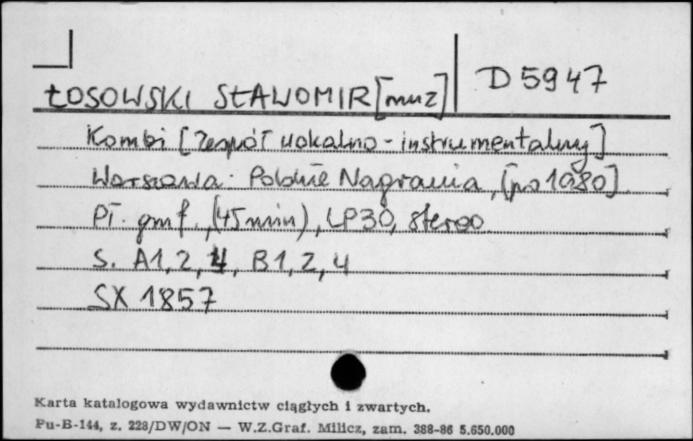 ŁOSOWSKI SŁAWOMIR [muz] D 5947
Kombi [Zespół wokalno-instrumentalny]
Warszawa: Polskie Nagrania, [po 1980]
Pł. gmf., (45 min), LP30, stereo
S. A1, 2, 4, B1, 2, 4
SX 1857
Karta katalogowa wydawnictw ciągłych i zwartych.
Pu-B-144, z. 228/DW/ON — W.Z.Graf. Milicz, zam. 388-86 5.650.000